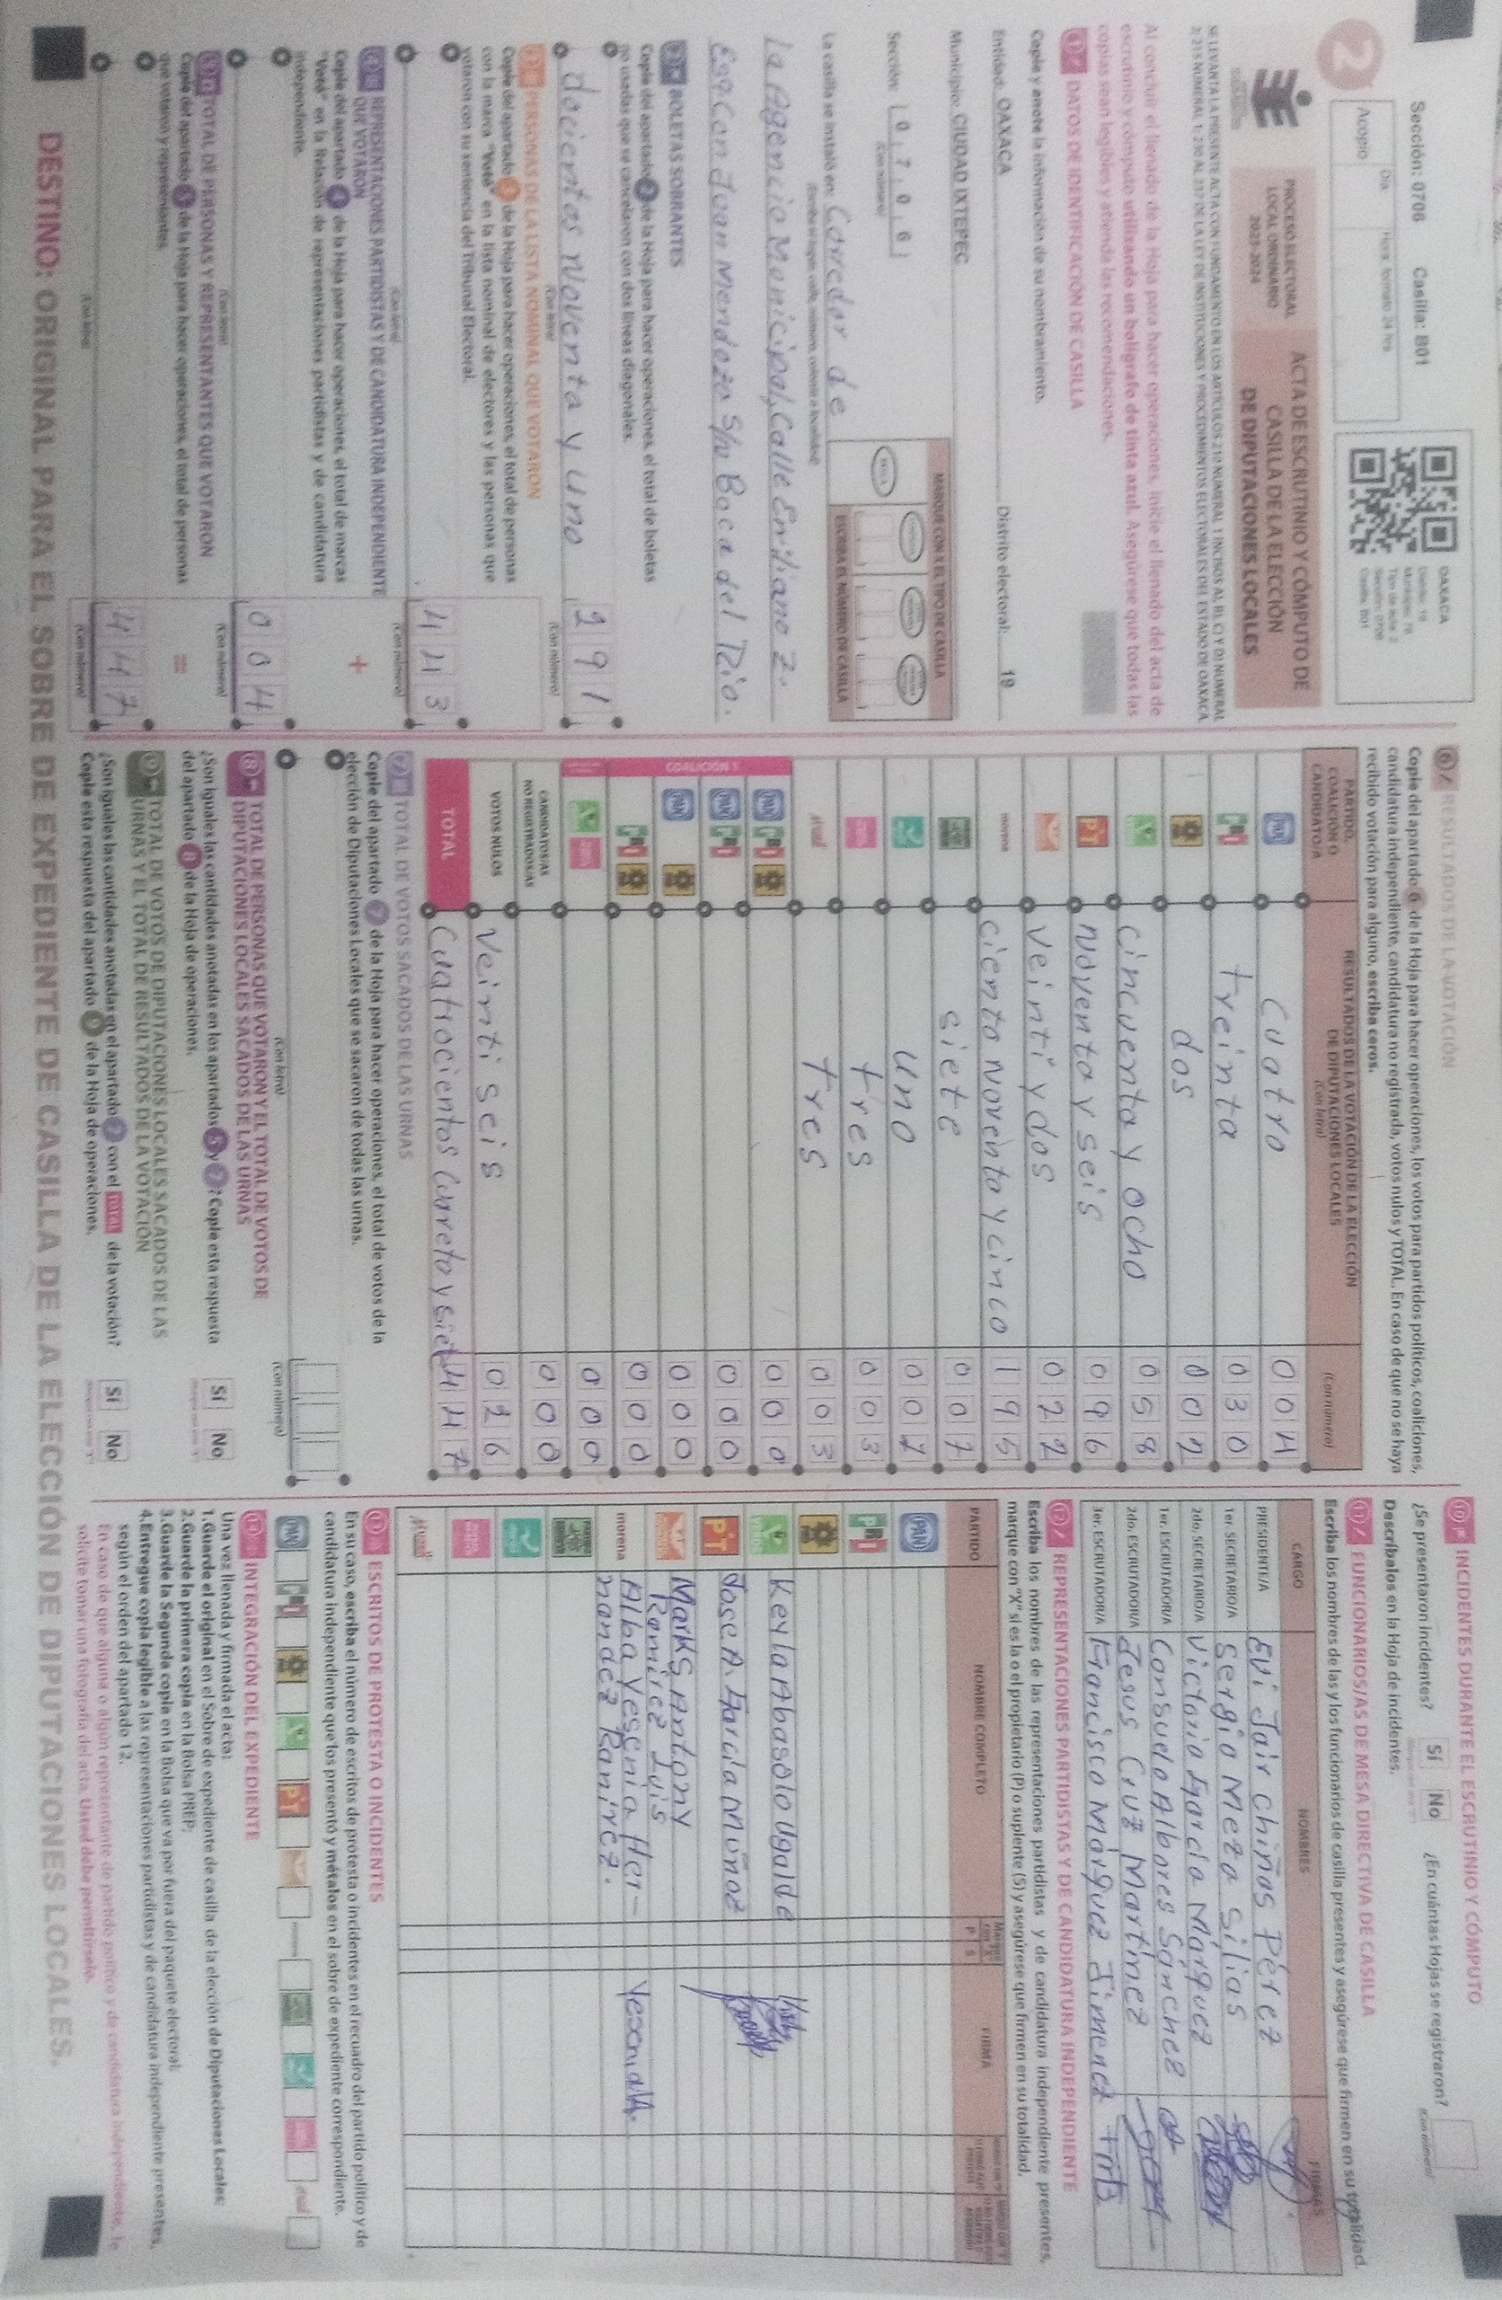 Sección: 0706 Casilla: B01
2
Acopio
Día
Hora formato 24 hrs
OAXACA
Distrito: 19
PROCESO ELECTORAL
LOCAL ORDINARIO
2023-2024
ACTA DE ESCRUTINIO Y CÓMPUTO DE
CASILLA DE LA ELECCIÓN
DE DIPUTACIONES LOCALES
Al concluir el llenado de la Hoja para hacer operaciones, inicie el llenado del acta de
escrutinio y cómputo utilizando un bolígrafo de tinta azul. Asegúrese que todas las
copias sean legibles y atienda las recomendaciones.
1 DATOS DE IDENTIFICACIÓN DE CASILLA
Copie y anote la información de su nombramiento.
Entidad: OAXACA Distrito electoral: 19
Municipio: CIUDAD IXTEPEC
Sección: 0 7 0 6
(Con número)
MARQUE CON X EL TIPO DE CASILLA
ESCRIBA EL NÚMERO DE CASILLA
La casilla se instaló en: Corredor de
La Agencia Municipal, Calle Emiliano Z.
Esq Con Juan Mendozo S/N Boca del Rio.
2 BOLETAS SOBRANTES
Copie del apartado 2 de la Hoja para hacer operaciones, el total de boletas
no usadas que se cancelaron con dos líneas diagonales.
docientos Noventa y uno 291
(Con letra) (Con número)
3 PERSONAS DE LA LISTA NOMINAL QUE VOTARON
Copie del apartado 3 de la Hoja para hacer operaciones, el total de personas
con la marca "Votó" en la lista nominal de electores y las personas que
votaron con su sentencia del Tribunal Electoral.
443
(Con letra) (Con número)
4 REPRESENTACIONES PARTIDISTAS Y DE CANDIDATURA INDEPENDIENTE
QUE VOTARON
Copie del apartado 4 de la Hoja para hacer operaciones, el total de marcas
"Votó" en la Relación de representaciones partidistas y de candidatura
independiente.
+
004
(Con letra) (Con número)
5 TOTAL DE PERSONAS Y REPRESENTANTES QUE VOTARON
Copie del apartado 5 de la Hoja para hacer operaciones, el total de personas
que votaron y representantes.
=
447
(Con letra) (Con número)
6 RESULTADOS DE LA VOTACIÓN
Copie del apartado 6 de la Hoja para hacer operaciones, los votos para partidos políticos, coaliciones,
candidatura independiente, candidatura no registrada, votos nulos y TOTAL. En caso de que no se haya
recibido votación para alguno, escriba ceros.
PARTIDO,
COALICIÓN O
CANDIDATO/A
RESULTADOS DE LA VOTACIÓN DE LA ELECCIÓN
DE DIPUTACIONES LOCALES
(Con letra)
(Con número)
PAN Cuatro 004
PRI treinta 030
dos 002
cincuenta y ocho 058
PT noventa y seis 096
veinti y dos 022
morena ciento noventa y cinco 195
siete 007
uno 001
tres 003
tres 003
COALICIÓN 1
PAN PRI 000
PAN PRI 000
PAN 000
PRI 000
000
CANDIDATOS/AS
NO REGISTRADOS/AS 000
VOTOS NULOS Veinti seis 026
TOTAL Cuatrocientos Cuareta y siete 447
7 TOTAL DE VOTOS SACADOS DE LAS URNAS
Copie del apartado 7 de la Hoja para hacer operaciones, el total de votos de la
elección de Diputaciones Locales que se sacaron de todas las urnas.
(Con letra) (Con número)
8 TOTAL DE PERSONAS QUE VOTARON Y EL TOTAL DE VOTOS DE
DIPUTACIONES LOCALES SACADOS DE LAS URNAS
¿Son iguales las cantidades anotadas en los apartados 5 y 7? Copie esta respuesta
del apartado 8 de la Hoja de operaciones.
Sí No
9 TOTAL DE VOTOS DE DIPUTACIONES LOCALES SACADOS DE LAS
URNAS Y EL TOTAL DE RESULTADOS DE LA VOTACIÓN
¿Son iguales las cantidades anotadas en el apartado 7 con el TOTAL de la votación?
Copie esta respuesta del apartado 9 de la Hoja de operaciones.
Sí No
10 INCIDENTES DURANTE EL ESCRUTINIO Y CÓMPUTO
¿Se presentaron incidentes? Sí No ¿En cuántas Hojas se registraron?
Descríbalos en la Hoja de incidentes.
11 FUNCIONARIOS/AS DE MESA DIRECTIVA DE CASILLA
Escriba los nombres de las y los funcionarios de casilla presentes y asegúrese que firmen en su totalidad.
CARGO NOMBRES FIRMAS
PRESIDENTE/A Evi Jair Chiñas Pérez
1er. SECRETARIO/A Sergio Meza Silias
2do. SECRETARIO/A Victorio García Márquez
1er. ESCRUTADOR/A Consuelo Albores Sánchez
2do. ESCRUTADOR/A Jesus Cruz Martínez
3er. ESCRUTADOR/A Francisco Márquez Jimenez
12 REPRESENTACIONES PARTIDISTAS Y DE CANDIDATURA INDEPENDIENTE
Escriba los nombres de las representaciones partidistas y de candidatura independiente presentes,
marque con "X" si es la o el propietario (P) o suplente (S) y asegúrese que firmen en su totalidad.
PARTIDO NOMBRE COMPLETO P S FIRMA
PAN
PRI
VERDE Keyla Abasolo Ugalde
PT Jose A. Garcia Muñoz
Marks Antony
Ramirez Luis
morena Alba Yessenia Her-
nandez Ramirez.
13 ESCRITOS DE PROTESTA O INCIDENTES
En su caso, escriba el número de escritos de protesta o incidentes en el recuadro del partido político y de
candidatura independiente que los presentó y métalos en el sobre de expediente correspondiente.
PAN PRI PT
INTEGRACIÓN DEL EXPEDIENTE
Una vez llenada y firmada el acta:
1.Guarde el original en el Sobre de expediente de casilla de la elección de Diputaciones Locales;
2.Guarde la primera copia en la Bolsa PREP;
3.Guarde la Segunda copia en la Bolsa que va por fuera del paquete electoral;
4.Entregue copia legible a las representaciones partidistas y de candidatura independiente presentes,
según el orden del apartado 12.
En caso de que alguna o algún representante de partido político y de candidatura independiente, le
solicite tomar una fotografía del acta, Usted debe permitírselo.
DESTINO: ORIGINAL PARA EL SOBRE DE EXPEDIENTE DE CASILLA DE LA ELECCIÓN DE DIPUTACIONES LOCALES.